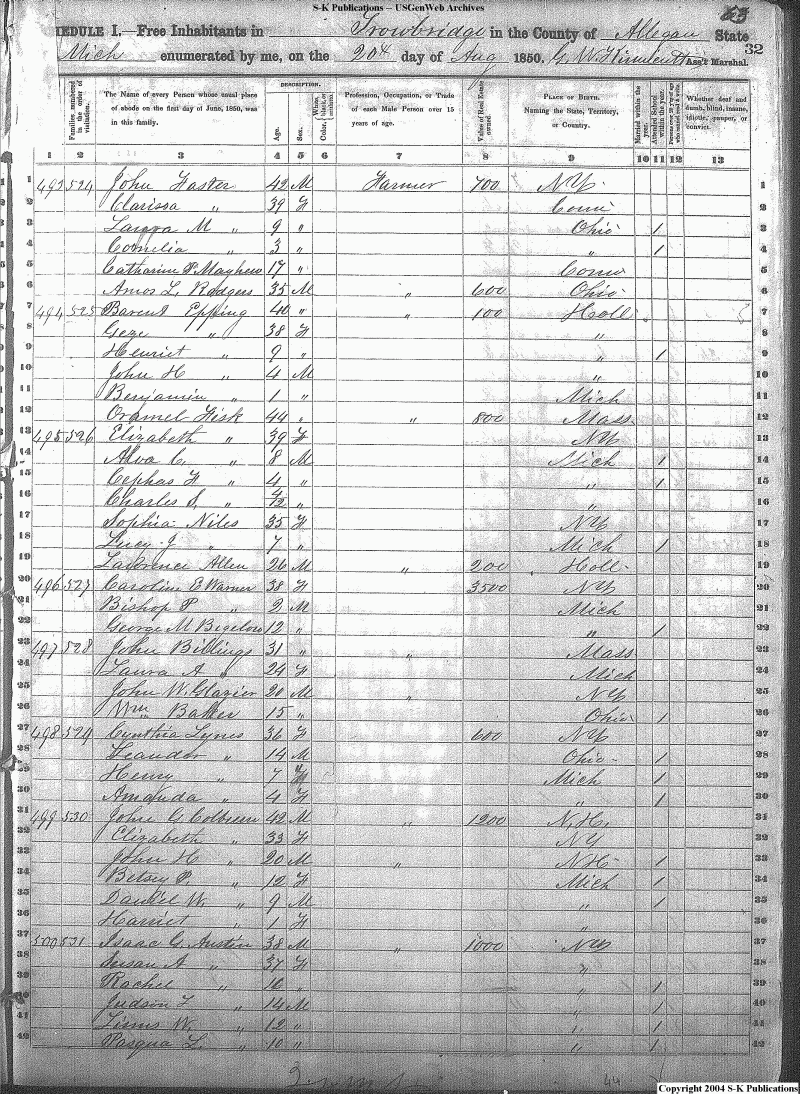 S-K Publications – USGenWeb Archives
63
HEDULE I.—Free Inhabitants in Trowbridge in the County of Allegan State
32
Mich enumerated by me, on the 20th day of Aug 1850. G. W. Ass't Marshal.
Families numbered in the order of visitation.
The Name of every Person whose usual place of abode on the first day of June, 1850, was in this family.
DESCRIPTION.
Age.
Sex.
Color, White, black, or mulatto.
Profession, Occupation, or Trade of each Male Person over 15 years of age.
Value of Real Estate owned.
PLACE OF BIRTH.
Naming the State, Territory, or Country.
Married within the year.
Attended School within the year.
Persons over 20 y'rs of age who cannot read & write.
Whether deaf and dumb, blind, insane, idiotic, pauper, or convict.
1 2 3 4 5 6 7 8 9 10 11 12 13
1 493 524 John Faster 42 M Farmer 700 NY 1
2 Clarissa " 39 F Conn 2
3 Laura M " 9 " Ohio 1 3
4 Cornelia " 3 " " 1 4
5 Catharine P Mayhew 17 " Conn 5
6 Amos L. Rodgers 35 M " 600 Ohio 6
7 494 525 Barent Epping 40 " " 100 Holl 7
8 Geze " 38 F " 8
9 Henriet " 9 " " 1 9
10 John H " 4 M " 10
11 Benjamin " 1 " Mich 11
12 Oramel Fisk 44 " " 800 Mass 12
13 495 526 Elizabeth " 39 F NY 13
14 Alva C. " 8 M Mich 1 14
15 Cephas F " 4 " " 1 15
16 Charles S. " 4/12 " " 16
17 Sophia Niles 35 F NY 17
18 Lucy J " 7 " Mich 1 18
19 Lawrence Allen 26 M " 200 Holl 19
20 496 527 Caroline E Warner 38 F 3500 NY 20
21 Bishop P " 2 M Mich 21
22 George M Bigelow 12 " " 1 22
23 497 528 John Billings 31 " " Mass 23
24 Laura A " 24 F Mich 24
25 John W. Glazier 20 M " NY 25
26 Wm Baker 15 " Ohio 1 26
27 498 529 Cynthia Lynes 36 F 600 NY 27
28 Leander " 14 M Ohio 1 28
29 Henry " 7 M Mich 1 29
30 Amanda " 4 F " 1 30
31 499 530 John G. Colburn 42 M " 1200 N.H. 31
32 Elizabeth " 33 F NY 32
33 John H " 20 M " NH 1 33
34 Betsey P. " 12 F Mich 1 34
35 Daniel W. " 9 M " 1 35
36 Harriet " 1 F " 36
37 500 531 Isaac G. Austin 38 M " 1000 NY 37
38 Susan A " 37 F " 38
39 Rachel " 16 " " 1 39
40 Judson L " 14 M " 1 40
41 W. " 12 " " 1 41
42 Pasqua L. " 10 " " 1 42
44
Copyright 2004 S-K Publications